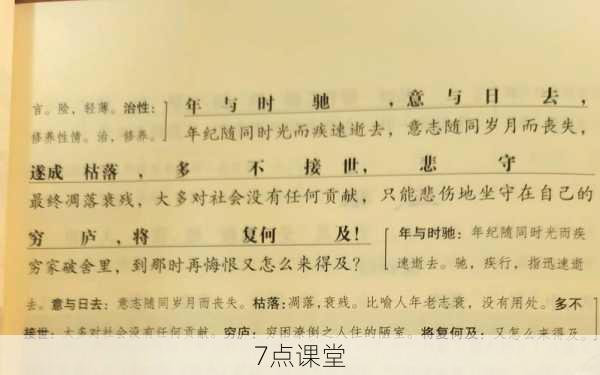 言。险，轻薄。治性：
修养性情。治，修养。
年与时驰，意与日去，
年纪随同时光而疾速逝去，意志随同岁月而丧失，
遂成枯落，多不接世，悲守
最终凋落衰残，大多对社会没有任何贡献，只能悲伤地坐守在自己的
穷庐，将复何及！
穷家破舍里，到那时再悔恨又怎么来得及？
年与时驰：年纪随同时光而疾
速逝去。驰，疾行，指迅速逝
去。意与日去：意志随同岁月而丧失。枯落：凋落，衰残。比喻人年老志衰，没有用处。多不
接世：大多对社会没有任何贡献。穷庐：穷困潦倒之人住的陋室。将复何及：又怎么来得及。
7点课堂